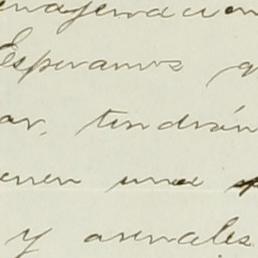 enagenacion
Esperamos q
ar, tendrán
enen una
y arenales